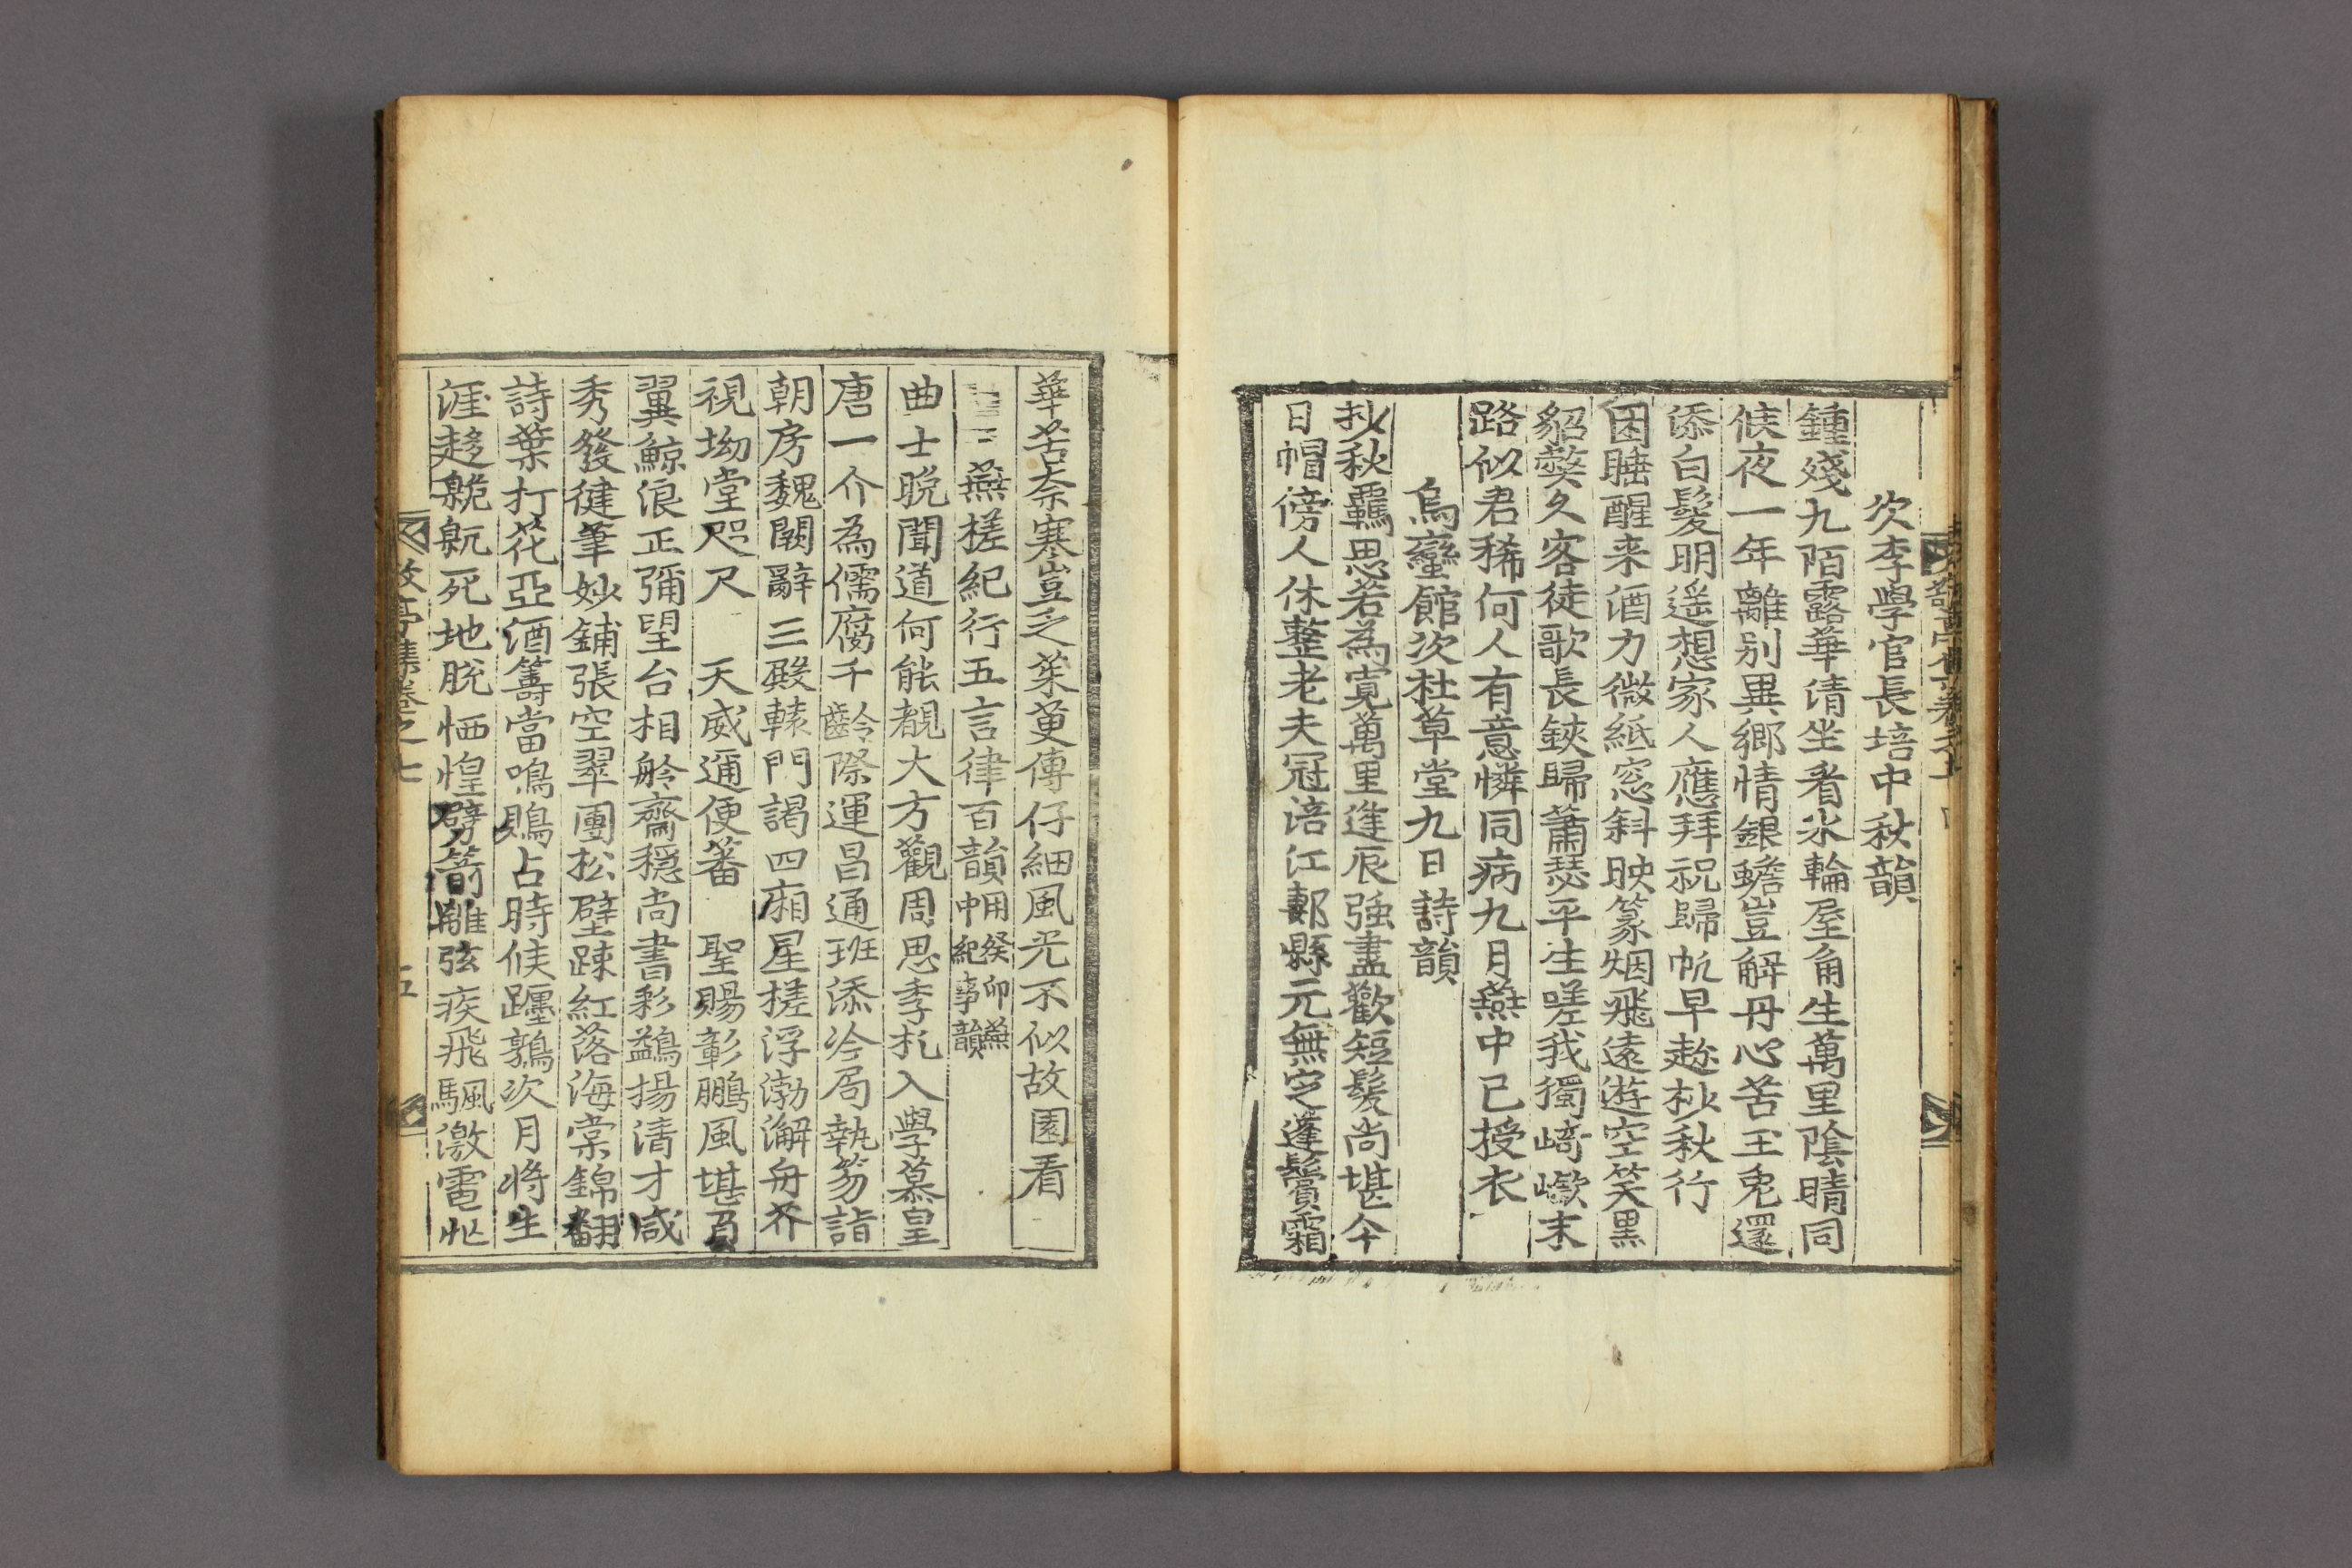 次李學官長培中秋韻
鍾殘九陌露華清坐看氷輪屋角生萬里陰晴同
候夜一年離别異鄉情銀蟾豈解丹心苦玉兎還
添白髮明遥想家人應拜祝歸帆早趂杪秋行
困睡醒来酒力微紙窓斜映篆烟飛遠遊空笑黑
貂弊久客徒歌長鋏歸簫瑟平生嗟我獨﨑嶔末
路似君稀何人有意憐同病九月燕中已授衣
烏蠻館次杜草堂九日詩韻
抄秋羈思若為寛萬里逢辰强盡歡短髮尚堪今
日帽傍人休整老夫冠涪江鄠縣元無定蓬鬢霜
華苦奈寒豈乏茱萸傳仔細風光不似故園看
燕槎紀行五言律百韻用癸卯燕中紀事韻
曲士晚聞道何能覩大方觀周思季札入學慕皇
唐一介為儒腐千齡際運昌通班添冷局執笏詣
朝房魏闕辭三殿轅門謁四廂星槎浮渤澥舟芥
視坳堂咫尺 天威邇便蕃 聖賜彰鵬風堪
翼鯨浪正彌望台相舲齋穏尚書彩鷁揚清才咸
秀發健筆妙鋪張空翠團松壁踈紅落海棠錦翻
詩葉打花亞酒籌當鳴鵙占時候躔鶉次月将生
涯趍䑽䑹死地脱恓惶劈箭離弦疾飛颿激電忙
亭集卷之七 五